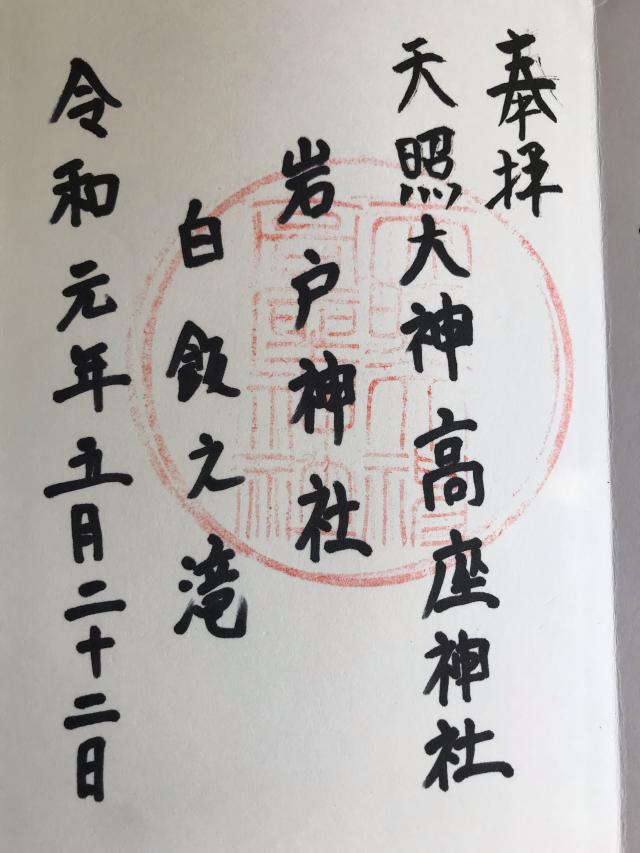 奉拝
天照大神高座神社
岩戸神社
白飯之滝
令和元年五月二十二日